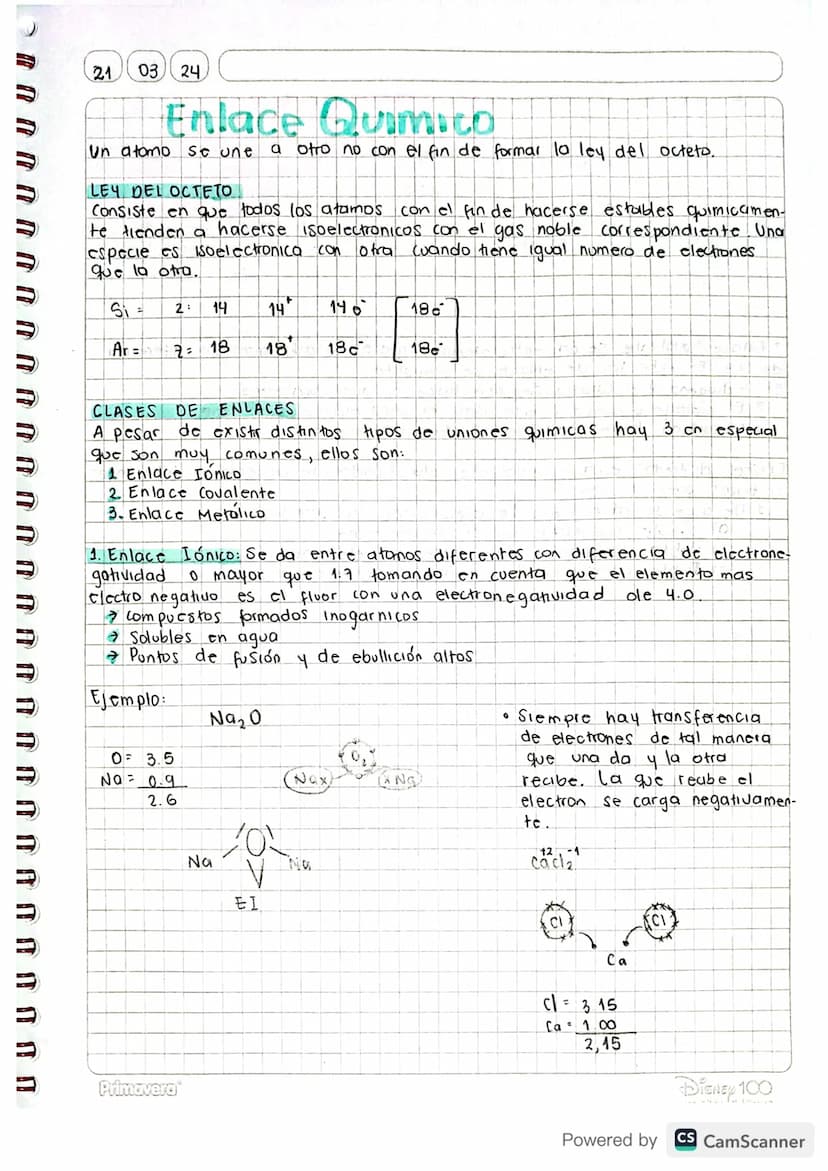 21 03 24
Enlace Quimico
Un atomo se une a otro no con el fin de formar la ley del octeto.
LEY DEL OCTETO
Consiste en que todos los atamos con el fin de hacerse estables quimicamen-
te tienden a hacerse isoelectronicos con el gas noble correspondiente. Una
especie es isoelectronica con otra cuando tiene igual numero de electrones
que la otra.
Si = 2: 14 14⁺ 14 e⁻ 18e⁻
Ar = z= 18 18⁺ 18e⁻ 18e⁻
CLASES DE ENLACES
A pesar de existir distintos tipos de uniones quimicas hay 3 en especial
que son muy comunes, ellos son:
1 Enlace Iónico
2. Enlace Covalente
3. Enlace Metálico
1. Enlace Iónico: Se da entre atomos diferentes con diferencia de electrone-
gatividad o mayor que 1.7 tomando en cuenta que el elemento mas
electro negativo es el fluor con una electronegatividad de 4.0.
→ Compuestos formados inogarnicos
→ Solubles en agua
→ Puntos de fusión y de ebullición altos
Ejemplo:
Na₂O
O = 3.5
Na = 0.9
2.6
Nax O₂ x Na
Na O Na
EI
• Siempre hay transferencia
de electrones de tal manera
que una da y la otra
recibe. La que recibe el
electron se carga negativamen-
te.
+2 -1
CaCl₂
Cl Cl
Ca
Cl = 3 15
Ca = 1.00
2,15
Primavera
Disney 100
Powered by CS CamScanner